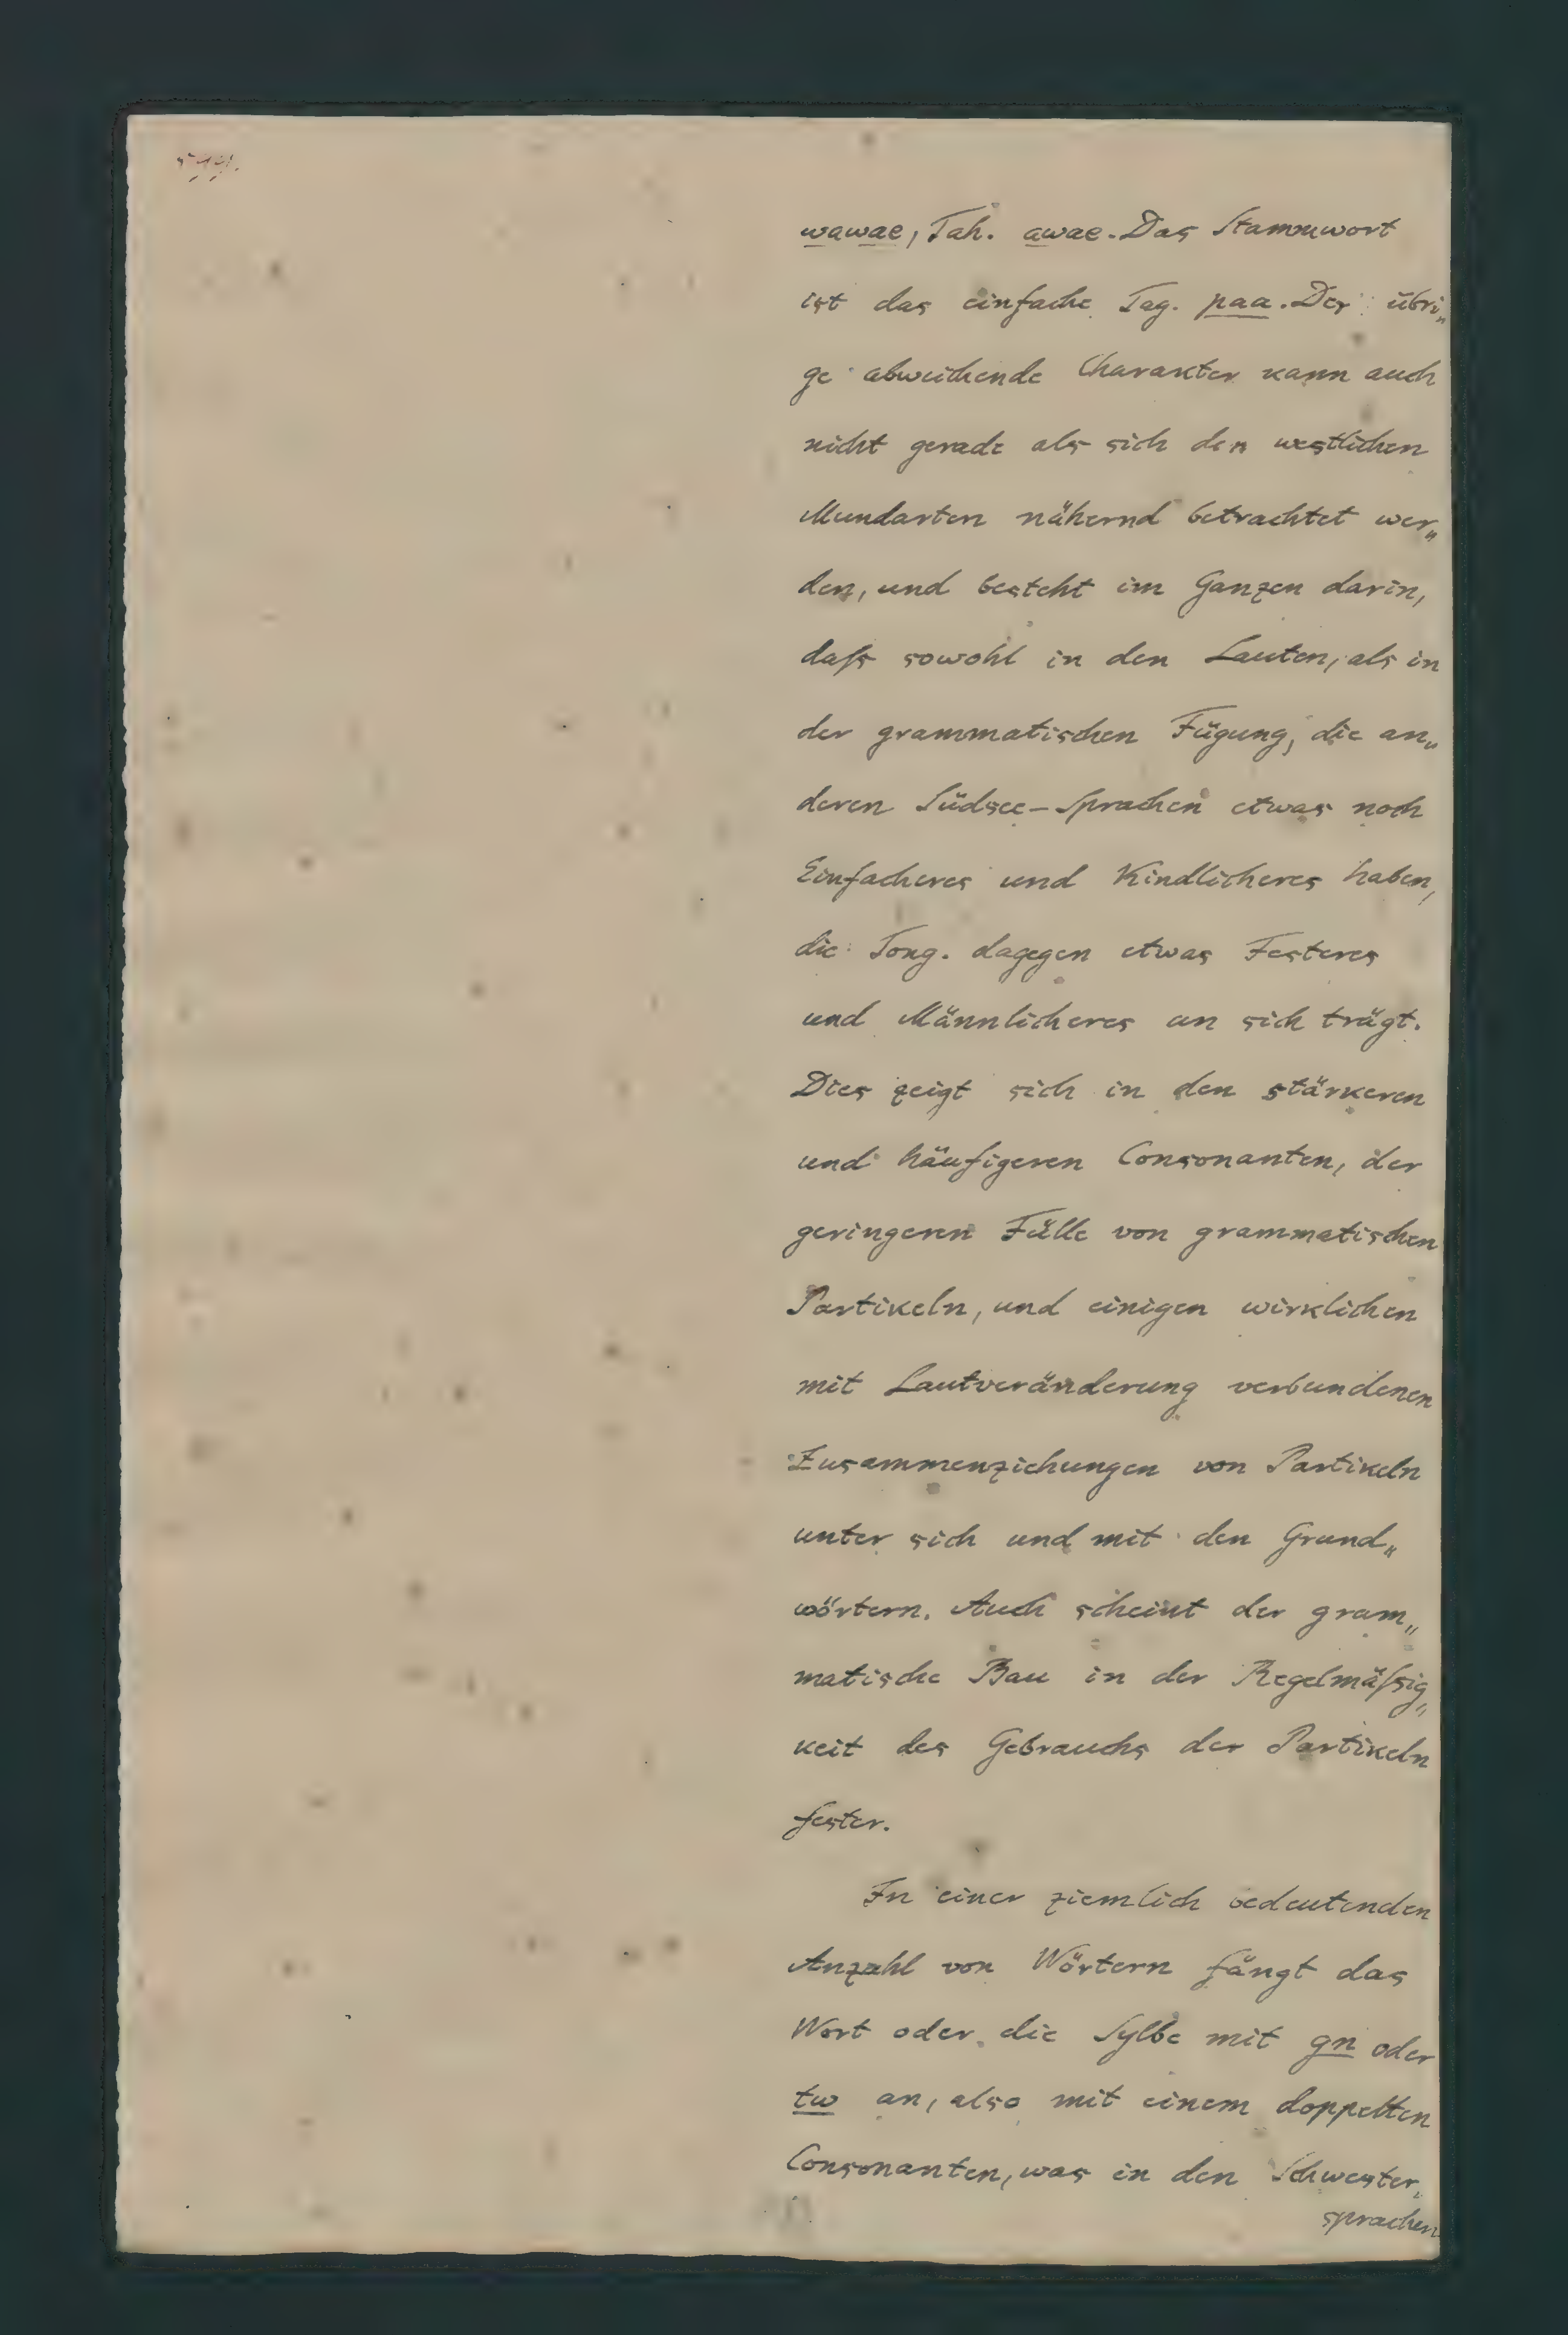 wawae, Tah. awae. Das Stammwort
ist das einfache Tag. paa. Der übri„
ge abweichende Charakter kann auch
nicht gerade als sich den westlichen
Mundarten nähernd betrachtet wer„
den, und besteht im Ganzen darin,
daſs sowohl in den Lauten, als in
der grammatischen Fügung, die an„
deren Südsee-Sprachen etwas noch
Einfacheres und Kindlicheres haben,
die Tong. dagegen etwas Festeres
und Männlicheres an sich trägt.
Dies zeigt sich in den stärkeren
und häufigeren Consonanten, der
geringeren Fülle von grammatischen
Partikeln, und einigen wirklichen
mit Lautveränderung verbundenen
Zusammenziehungen von Partikeln
unter sich und mit den Grund„
wörtern. Auch scheint der gram„
matische Bau in der Regelmäſsig„
keit des Gebrauchs der Partikeln
fester.
In einer ziemlich bedeutenden
Anzahl von Wörtern fängt das
Wort oder die Sylbe mit gn oder
tw an, also mit einem doppelten
Consonanten, was in den Schwester„
sprachen